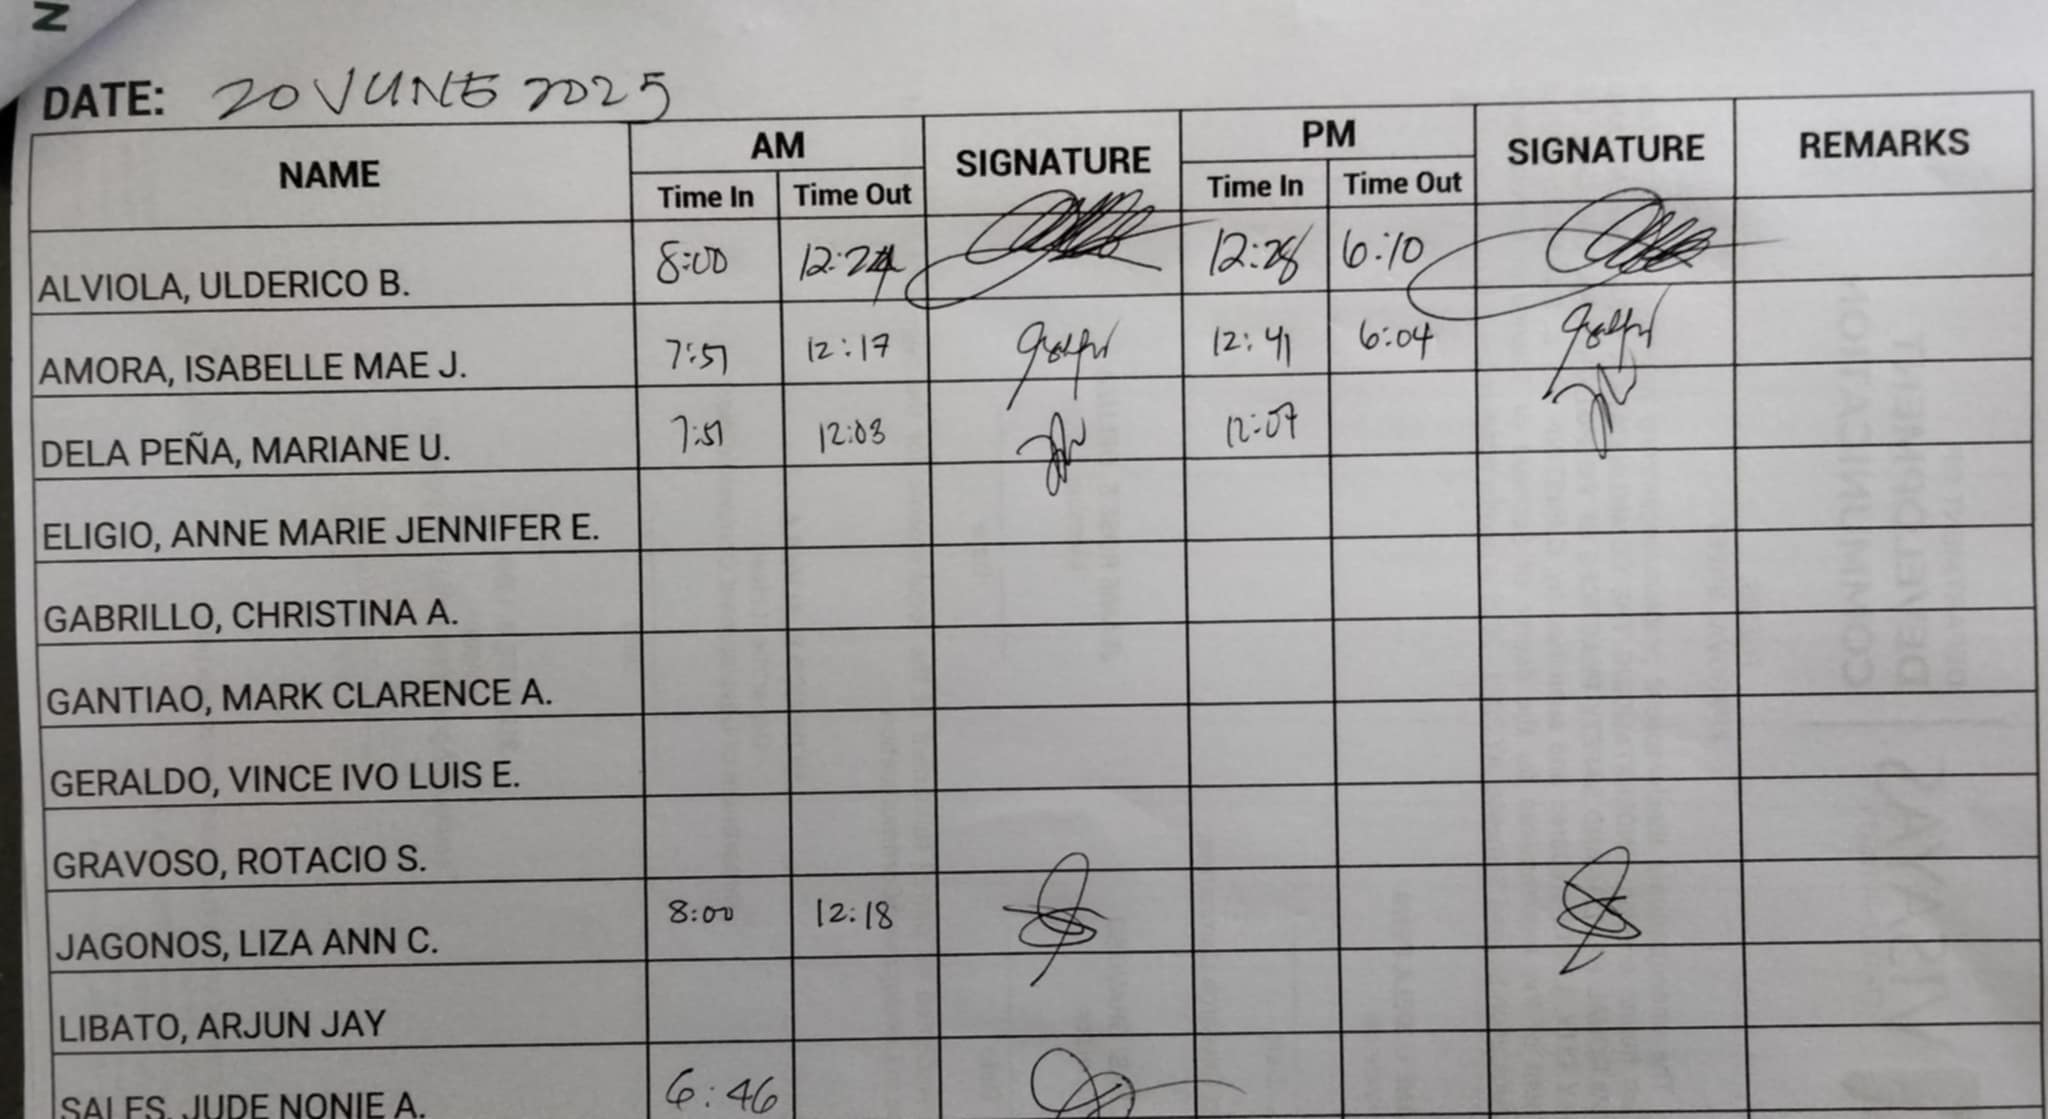 N
DATE: 20 JUNE 2025
NAME AM SIGNATURE PM SIGNATURE REMARKS
Time In Time Out Time In Time Out
ALVIOLA, ULDERICO B. 8:00 12:24 12:28 6:10
AMORA, ISABELLE MAE J. 7:51 12:17 12:41 6:04
DELA PEÑA, MARIANE U. 7:51 12:03 12:07
ELIGIO, ANNE MARIE JENNIFER E.
GABRILLO, CHRISTINA A.
GANTIAO, MARK CLARENCE A.
GERALDO, VINCE IVO LUIS E.
GRAVOSO, ROTACIO S.
JAGONOS, LIZA ANN C. 8:00 12:18
LIBATO, ARJUN JAY
SALES, JUDE NONIE A. 6:46